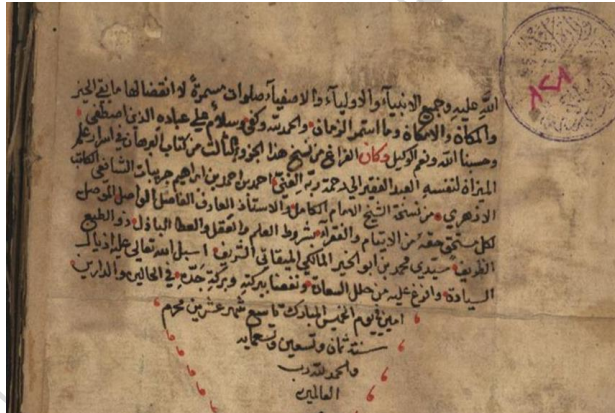 الله عليه وجميع الانبيآء والاوليآء والاصفيآء صلوات مستمرة لا انقضا لها ما بقي الحيز
والمكان والامكان وما استمر الزمان والحمد لله وكفى وسلام على عباده الذين اصطفى
وحسبنا الله ونعم الوكيل وكان الفراغ من نسخ هذا الجزو الثالث من كتاب البرهان في اسرار علم
الميزان لنفسه العبد الفقير الي رحمة ربه الغني احمد بن احمد بن ابراهيم الشافعي الكاتب
الازهري من نسخة الشيخ الامام الكامل والاستاذ العارف الفاضل الواصل الموصل
لكل مستحق حقه من الايتام والفقراء بشروط العلم والعقل والعطا الباذل ذو الطبع
الظريف سيدي محمد بن ابو الخير المالكي الميقاتي الشريف اسبل الله تعالى عليه اذيال
السيادة وافرغ عليه من حلل السعادة ونفعنا ببركته وبركة جده في الحالين والدارين
امين في يوم الخميس المبارك تاسع شهر عشرين محرم
سنة ثمان وتسعين وتسعمايه
والحمد لله رب
العالمين
٨٢٨